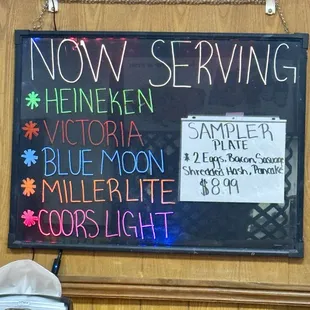 NOW SERVING
* HEINEKEN
* VICTORIA
* BLUE MOON
* MILLER LITE
* COORS LIGHT
SAMPLER
PLATE
* 2 Eggs, Bacon, Sausage
Shredded Hash, Pancake
$8.99